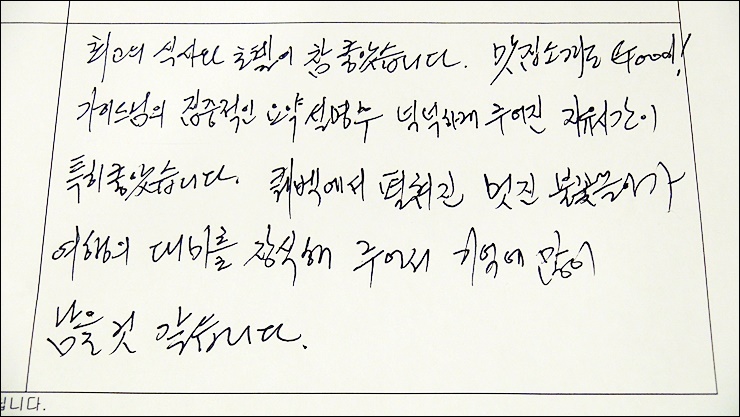 최고의 식사와 호텔이 참 좋았습니다. 맛집소개도 Good!
가이드님의 집중적인 요약설명후 넉넉하게 주어진 자유시간이
특히좋았습니다. 퀘벡에서 펼쳐진 멋진 불꽃놀이가
여행의 대미를 장식해 주어서 기억에 많이
남을것 같습니다.
니다.